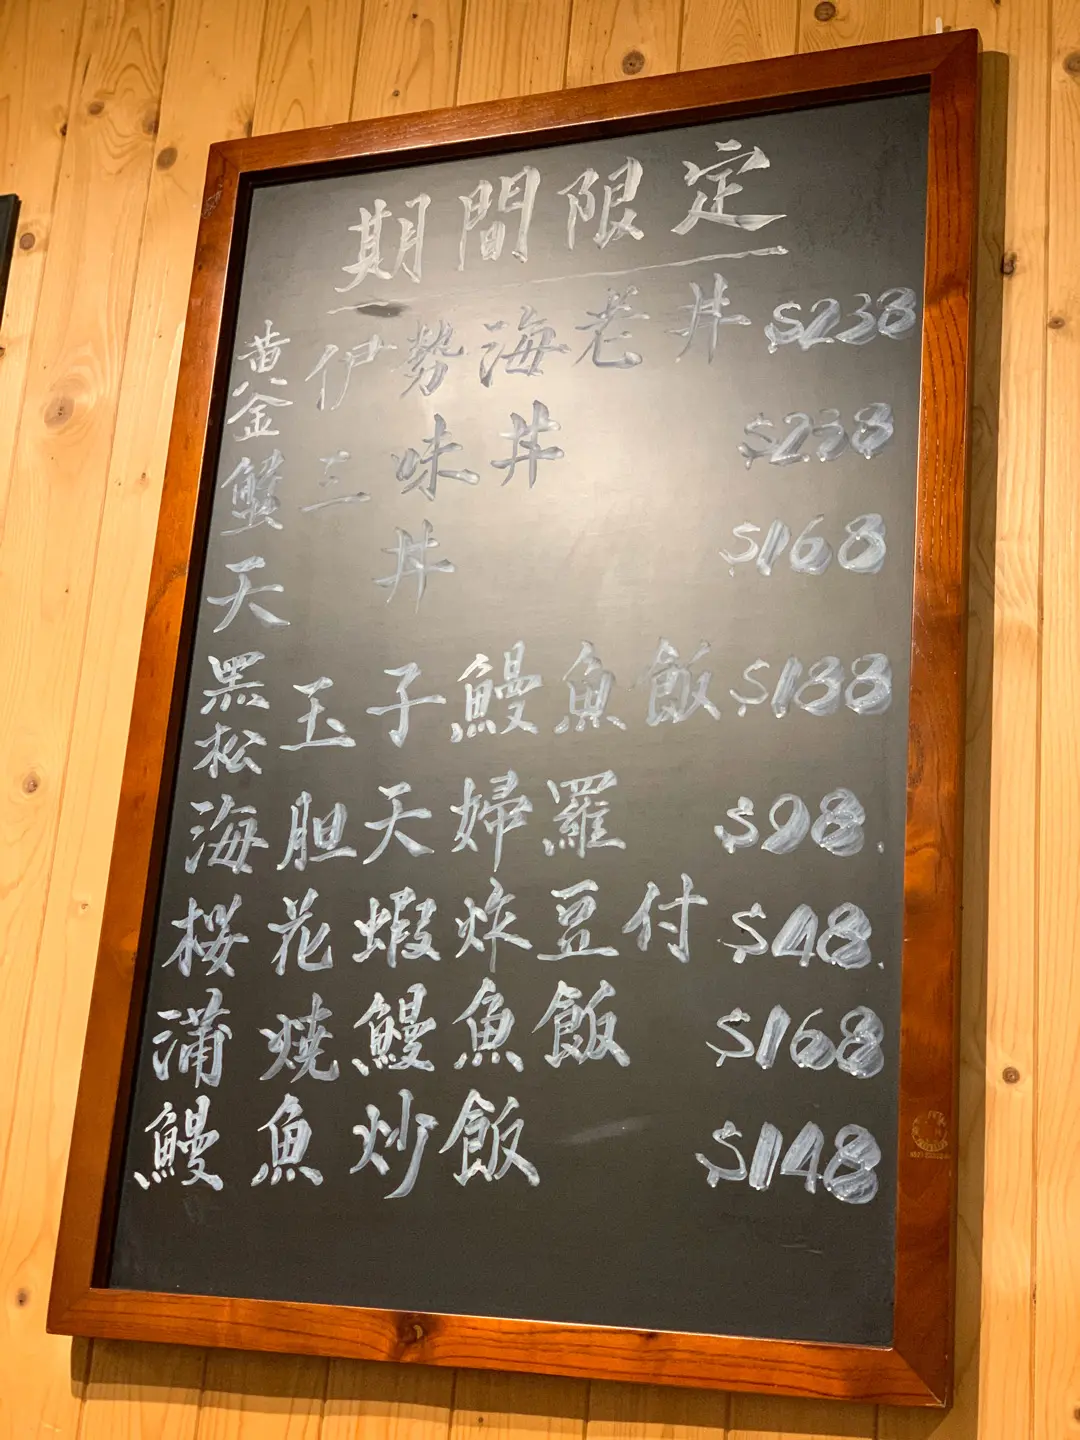 期間限定
黄金伊勢海老丼 $238
蟹三味丼 $238
天丼 $168
黑松玉子鰻魚飯 $188
海胆天婦羅 $98.
桜花蝦炸豆付 $48.
蒲燒鰻魚飯 $168
鰻魚炒飯 $148